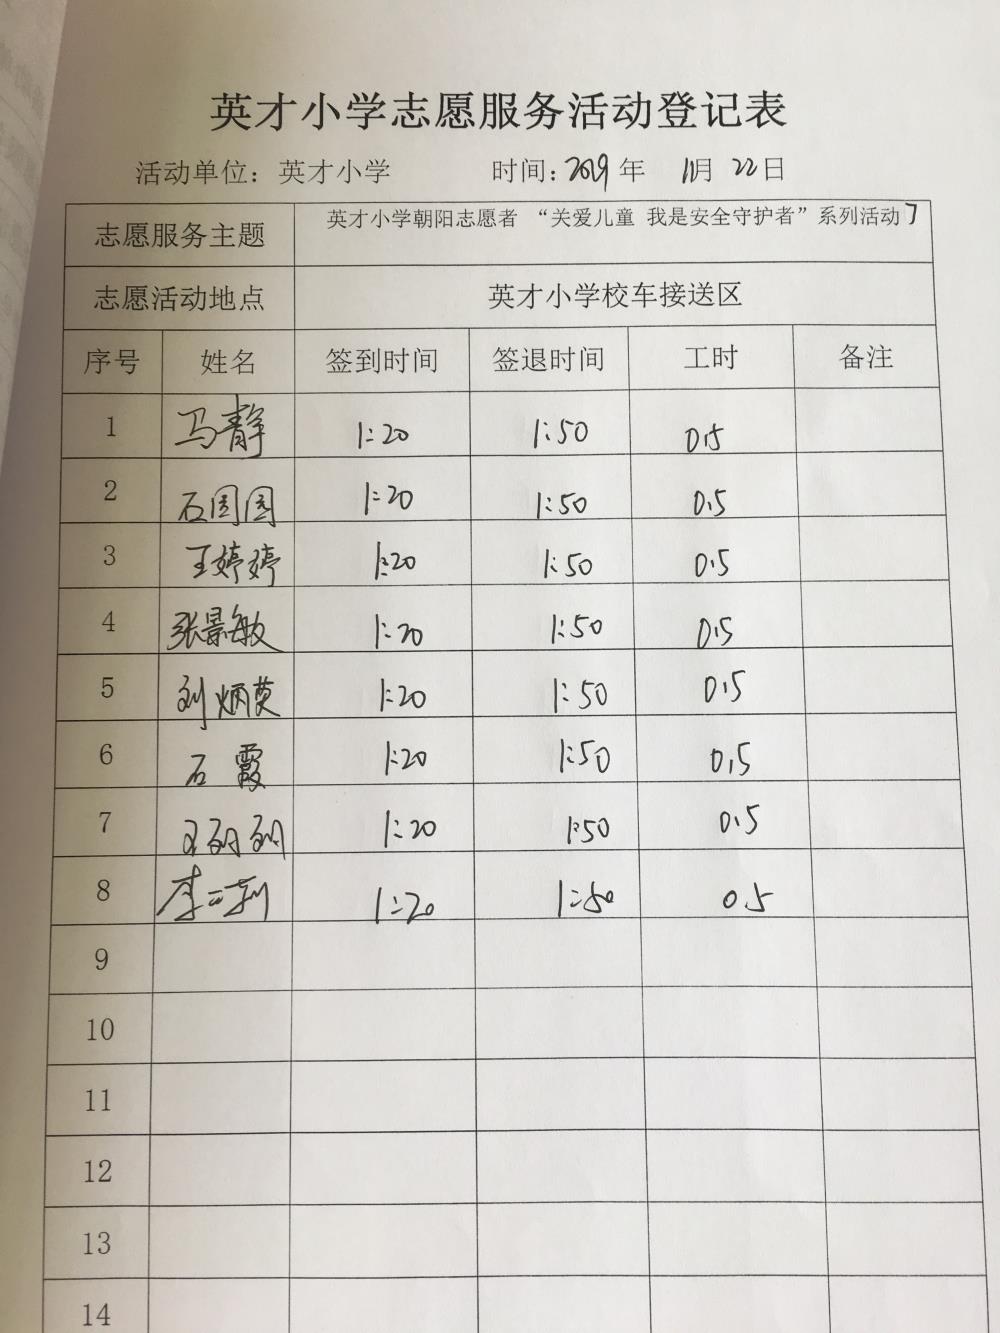 英才小学志愿服务活动登记表
活动单位：英才小学 时间：2019年 11月 22日
志愿服务主题 英才小学朝阳志愿者 “关爱儿童 我是安全守护者”系列活动7
志愿活动地点 英才小学校车接送区
序号 姓名 签到时间 签退时间 工时 备注
1 马静 1:20 1:50 0.5
2 石园园 1:20 1:50 0.5
3 王婷婷 1:20 1:50 0.5
4 张景敏 1:20 1:50 0.5
5 刘炳英 1:20 1:50 0.5
6 石霞 1:20 1:50 0.5
7 1:20 1:50 0.5
8 1:20 1:50 0.5
9
10
11
12
13
14